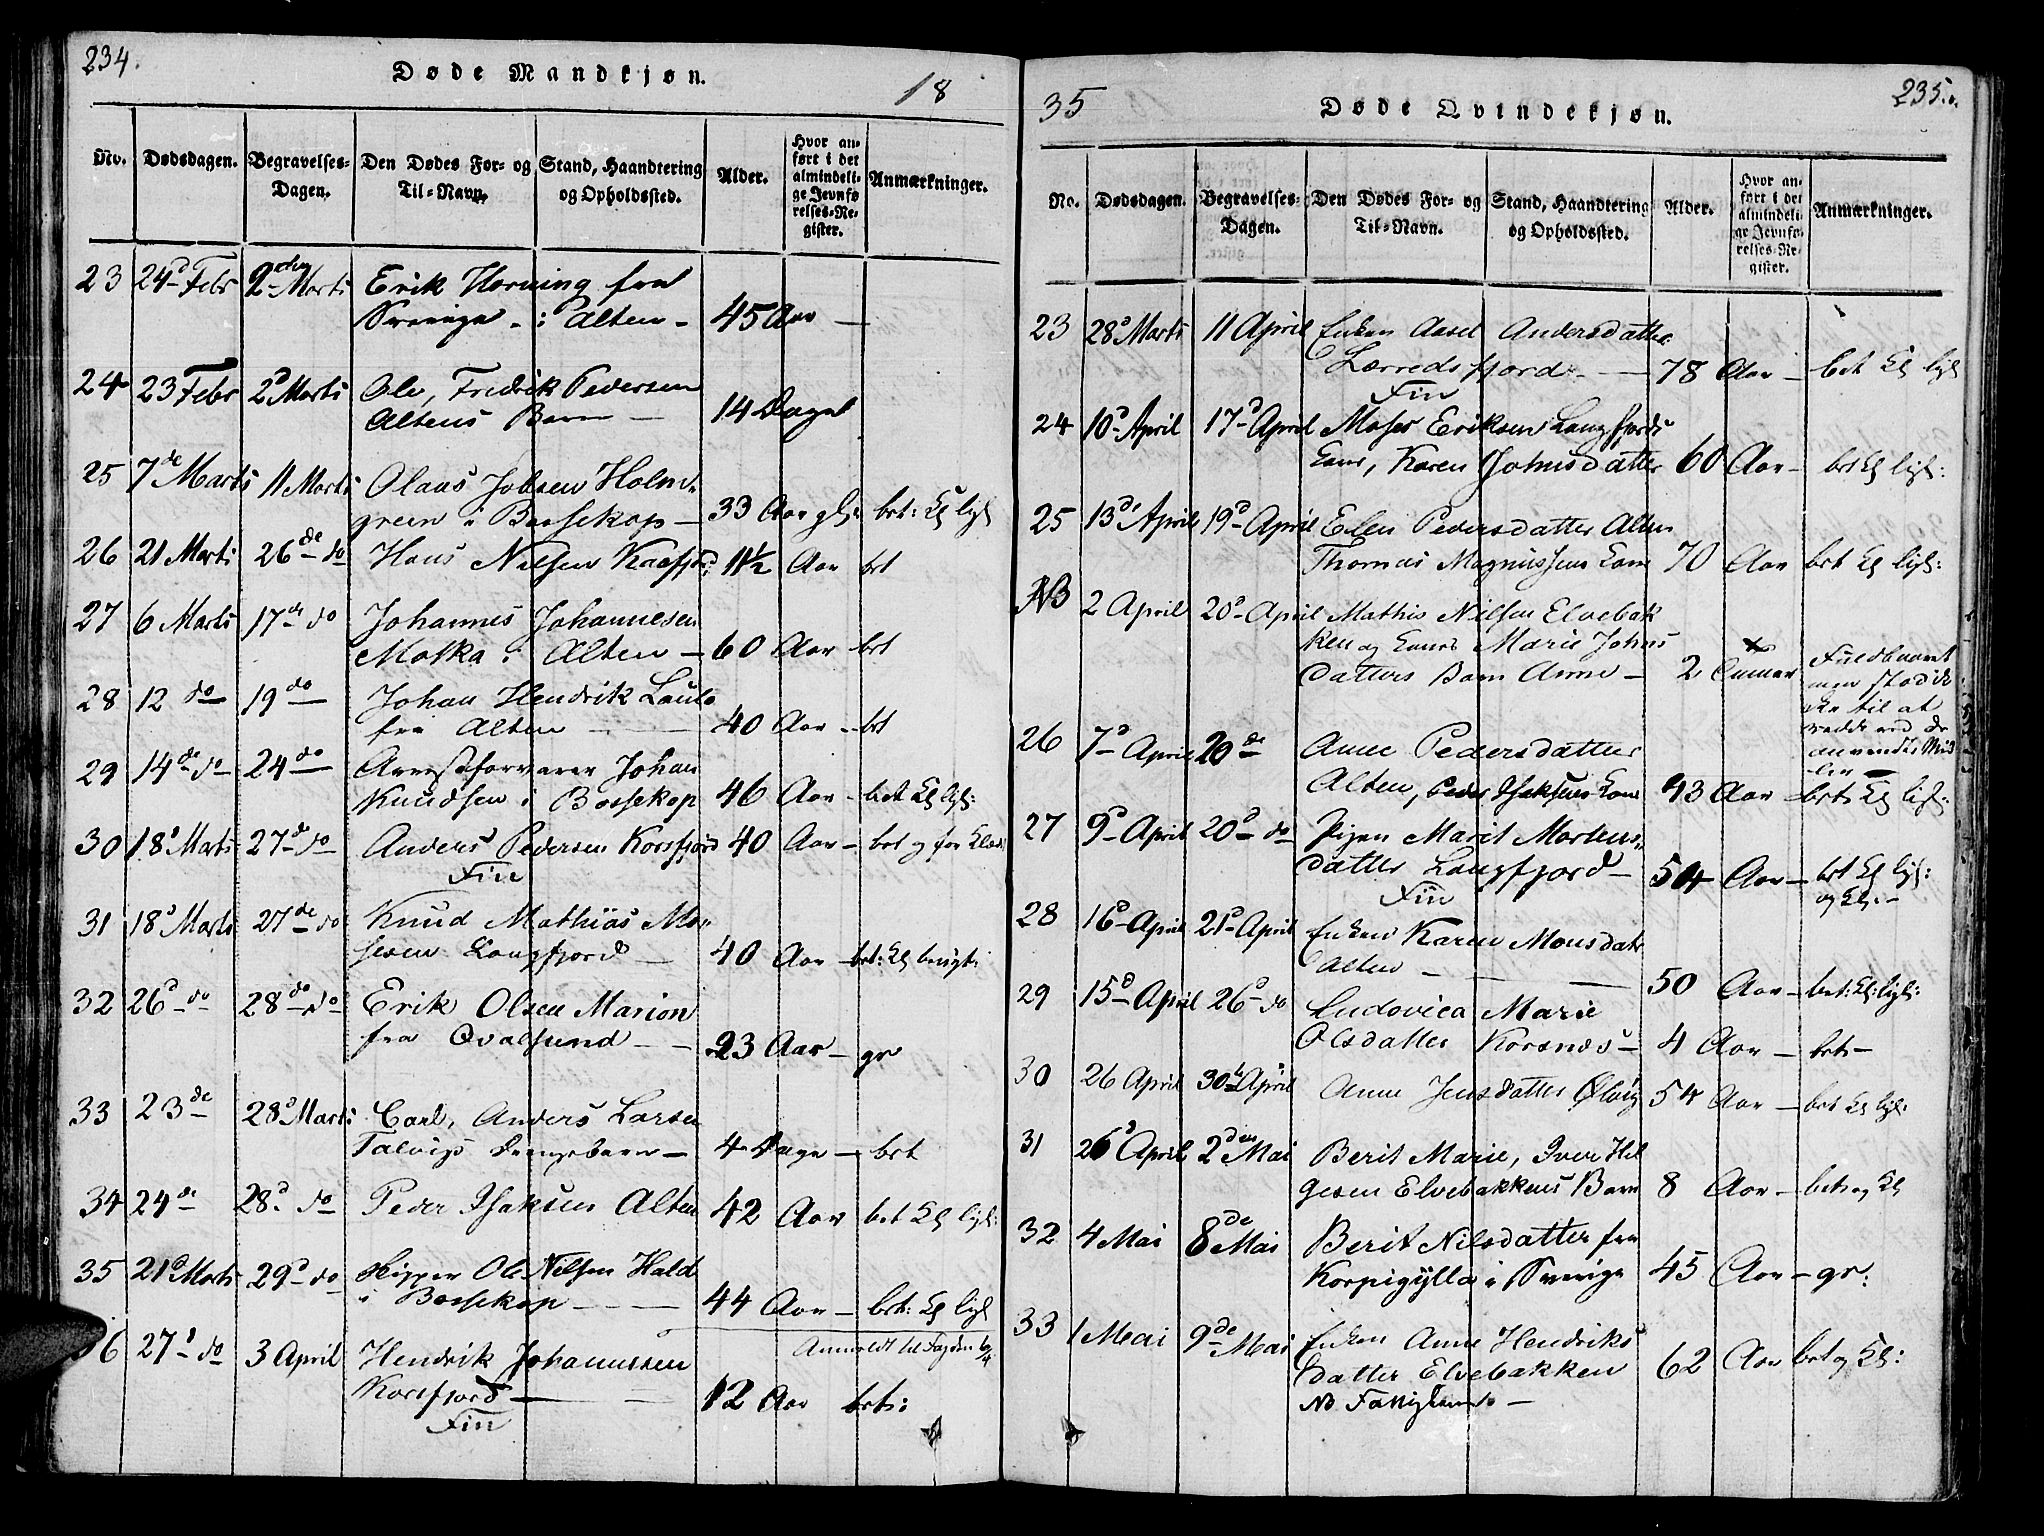 234.
Døde Mandkjøn.
18
No. Dødsdagen. Begravelses-Dagen. Den Dødes For- og Til-Navn. Stand, Haandtering og Opholdssted. Alder. Hvor anført i det almindelige Jevnførelses-Register. Anmærkninger.
23 24d Febr 2den Marts Erik Horning fra
Sverige - i Alten - 45 Aar —
24 23 Febr 2d Marts Ole, Fredrik Pedersen
Altens Barn — 14 Dage
25 7de Marts 11 Marts Olaus Johsen Holm-
green i Bossekop — 33 Aar
26 21 Marts 26de do Hans Nilsen Kaafjord 11½ Aar bet
27 6 Marts 17de do Johannes Johannesen
Motka i Alten — 60 Aar bet
28 12 do 19 do Johan Hendrik
fra Alten — 40 Aar - bet
29 14de do 24 do Arrestforvarer Johan
Knudsen i Bossekop 46 Aar - bet Kl ligl:
30 18d Marts 27de do Anders Pedersen Korsfjord 40 Aar - bet og for
Fin
31 18d Marts 27de do Knud Mathias Mo-
sesen Langfjord — 40 Aar - bet: Kl
32 26d do 28 do Erik Olsen Marion
fra Qvalsund — 23 Aar - gr
33 23de 28d Marts Carl, Anders Larsen
Talvigs Drengebarn — 4 Dage - bet
34 24de 28d do Peder Isaksen Alten 42 Aar bet Kl ligl:
35 21d Marts 29d do Skipper Ole Nilsen Hald
i Bossekop — 44 Aar - bet: Kl ligl
36 27d do 3 April Hendrik Johannessen Anmeldt til Fogden 6/4
Korsfjord — 12 Aar bet:
Fin
35
Døde Qvindekjøn.
235.
No. Dødsdagen. Begravelses-Dagen. Den Dødes For- og Til-Navn. Stand, Haandtering og Opholdssted. Alder. Hvor anført i det almindelige Jevnførelses-Register. Anmærkninger.
23 28d Marts 11 April Enken Aasel Andersdatter
Lerredsfjord — 78 Aar - bet Kl ligl
Fin
24 10d April 17d April Moses Eriksen Langfjords
Kone, Karen Johnsdatter 60 Aar - bet Kl ligl:
25 13d April 19d April Elen Pedersdatter Alten
Thomas Magnussens Kone 70 Aar bet Kl ligl:
NB 2 April 20d April Mathis Nilsen Elvebak
ken og Kones Marie Johns
datters Barn Anne — 2 Fuldbaaret
men stod ik
ke til at
redde ved de
anvendte Mid
ler —
26 7d April 20de Anne Pedersdatter
Alten, Peder Isaksens Kone 43 Aar - bet: Kl ligl:
27 9d April 20d do Pigen Marit Mortens-
datter Langfjord — 54 Aar - bet Kl ligl:
Fin og Kl. -
28 16d April 21d April Enken Karen Monsdatr
Alten — 50 Aar - bet: Kl: ligl:
29 15d April 26d do Ludovica Marie
Olsdatter Korsnes — 4 Aar - bet -
30 26 April 30de April Anne Jensdatter 54 Aar - bet Kl ligl:
31 26d April 2den Mai Berit Marie, Iver Hel
gesen Elvebakkens Barn 8 Aar - bet og Kl
32 4 Mai 8de Mai Berit Nilsdatter fra
Korpigylla i Sverige 45 Aar - gr:
33 1 Mai 9de Mai Enken Anne Hendriks
datter Elvebakken 62 Aar bet og Kl:
NB —